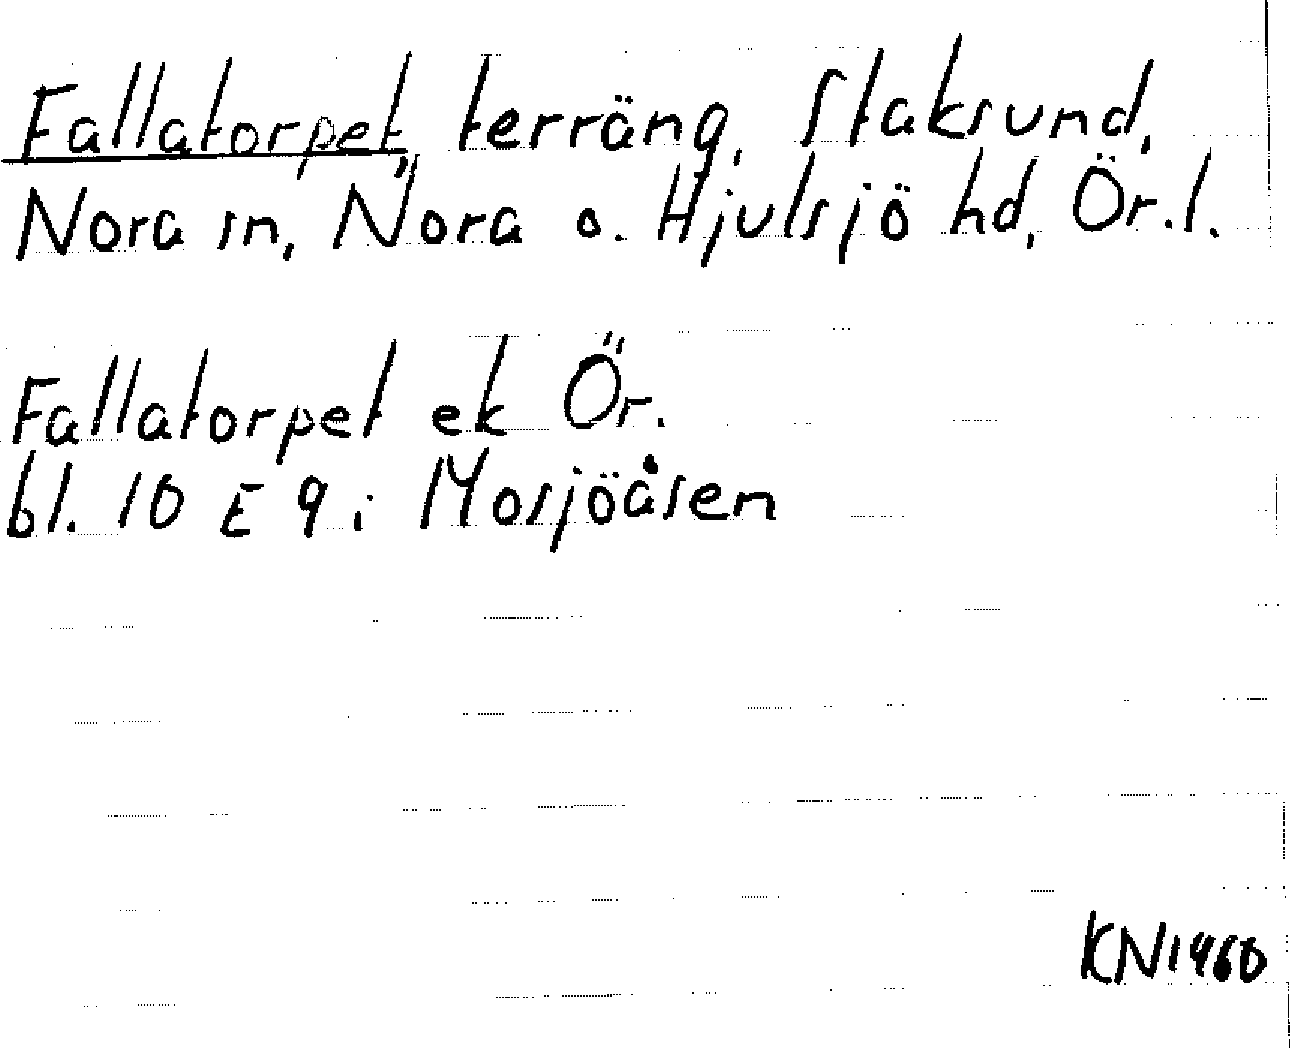 Fallatorpet, terräng, Staksund,
Nora sn, Nora o. Hjulsjö hd, Ör.l.
Fallatorpet ek Ör.
bl. 10 E 9 i Mosjöåsen
KN 1960